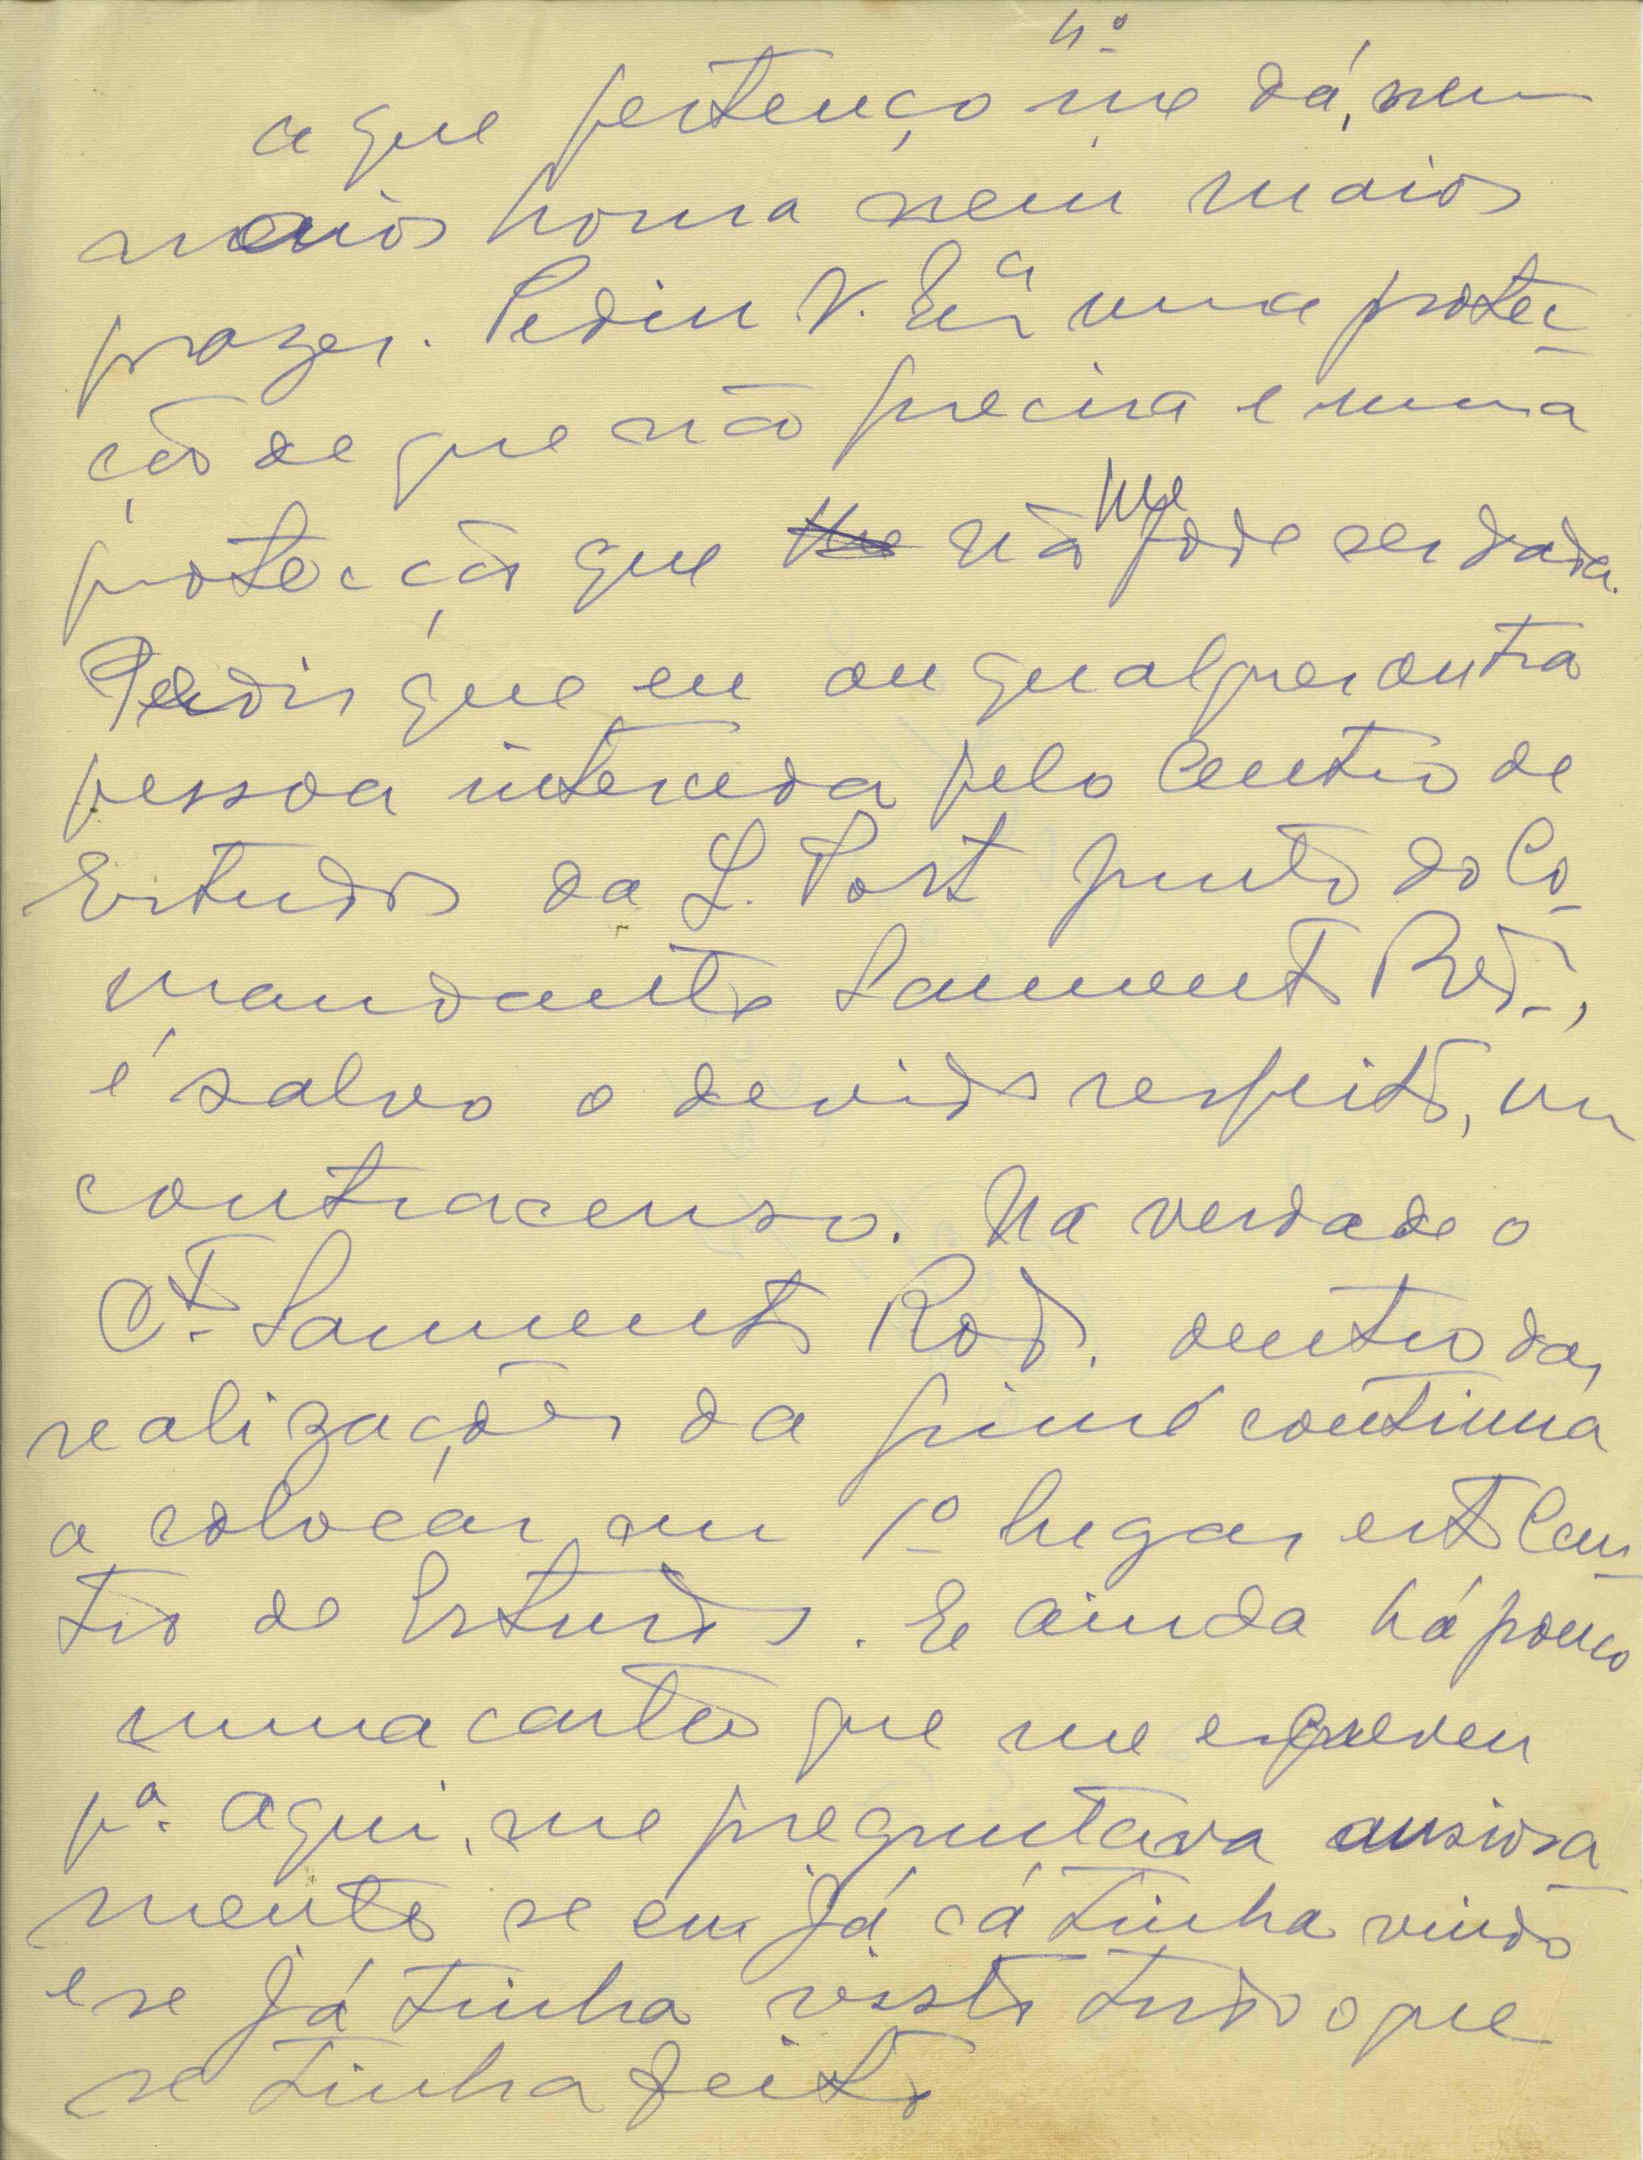 a que pertenço nº me dá, nem
maior honra nem maior
prazer. Pediu V. Exª uma protec-
ção de que não precisa e uma
protecção que não lhe pode ser dada.
Pedir que eu ou qualquer outra
pessoa interceda pelo Centro de
Estudos da G. Port junto do Co-
mandante Sarmento Rod.,
é salvo o devido respeito, um
contracenso. Na verdade o
Cte. Sarmento Rod. dentro das
realizações da Guiné continua
a colocar em 1º lugar este Cen-
tro de Estudos. E ainda há pouco
numa carta que me escreveu
pª. aqui, me preguntava ansiosa-
mente se eu já cá tinha vindo
e se já tinha visto tudo o que
se tinha feito